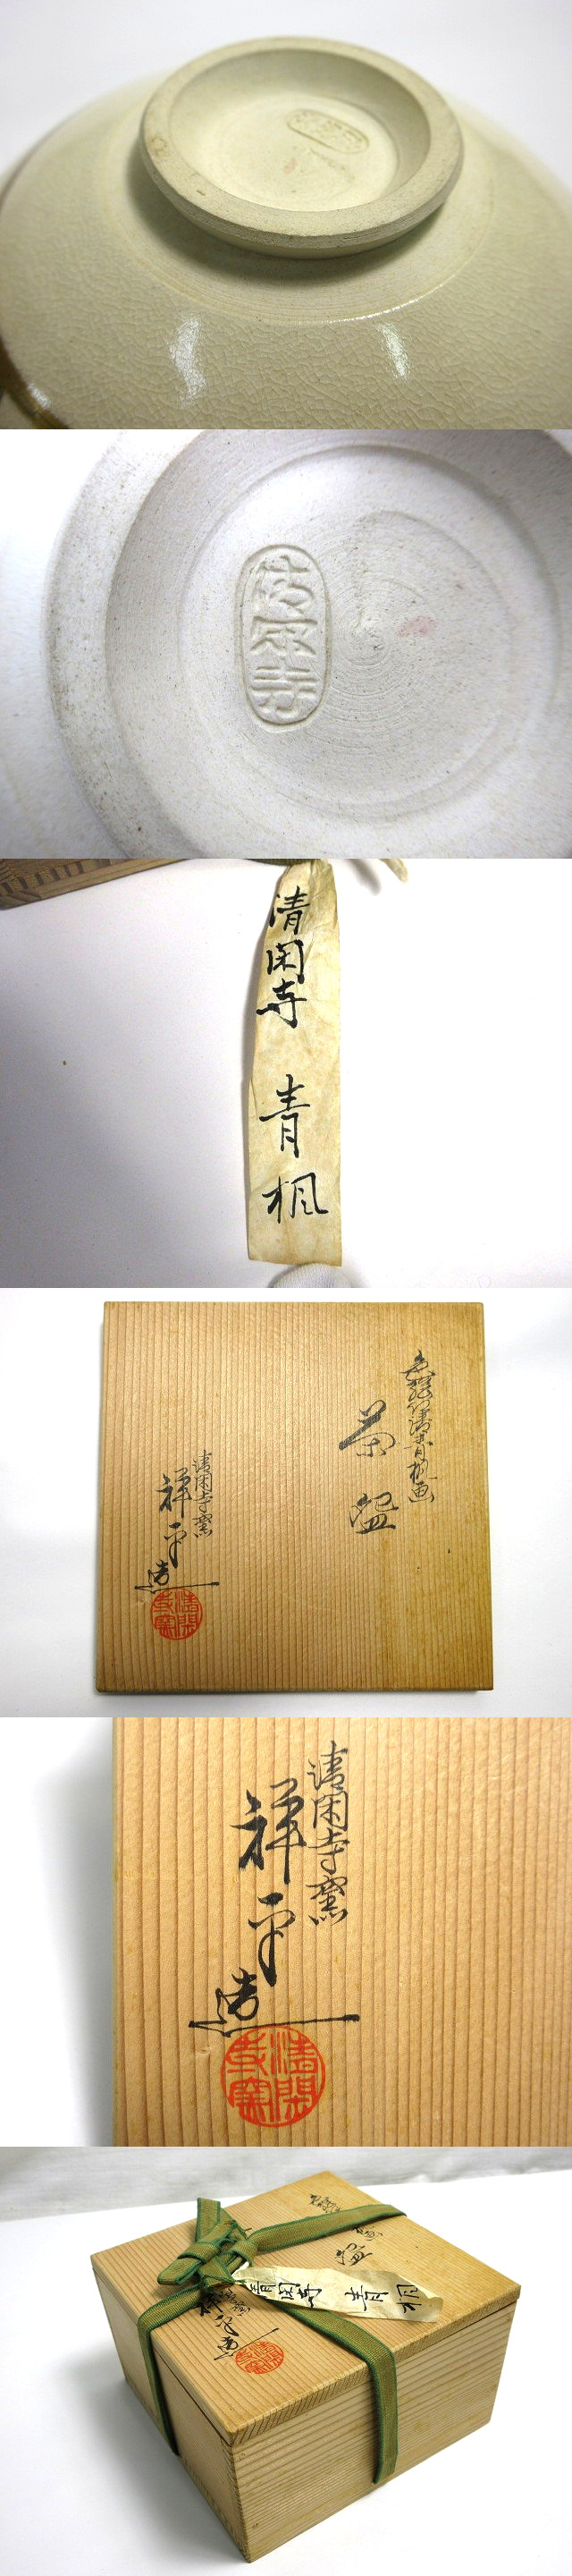 清閑寺
清閑寺 青楓
茶盌
清閑寺窯
祥平造
清閑寺窯
清閑寺窯
祥平造
清閑寺窯
清閑寺 青楓